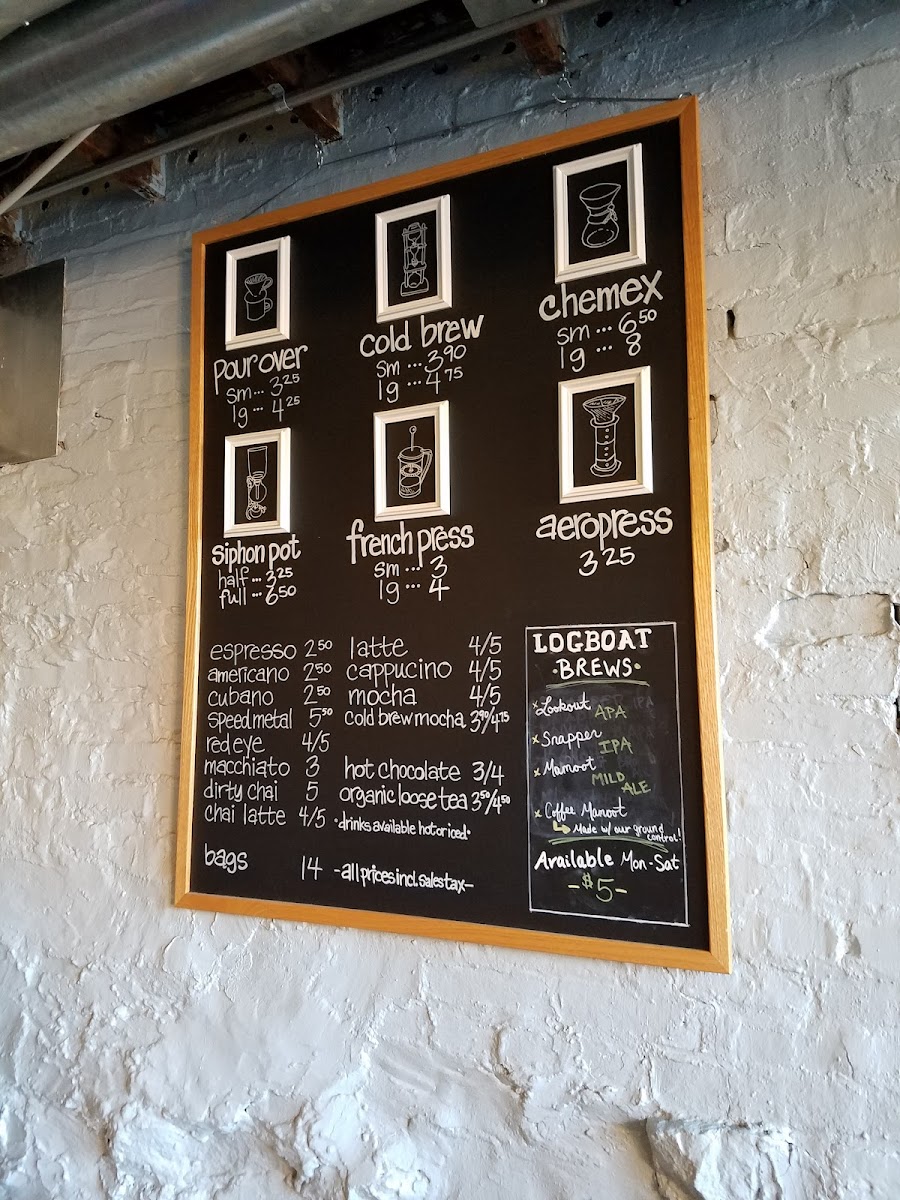 pour over
sm... 3.25
lg... 4.25
cold brew
sm... 3.90
lg... 4.75
chemex
sm... 6.50
lg... 8
siphon pot
half... 3.25
full... 6.50
french press
sm... 3
lg... 4
aeropress
3.25
espresso 2.50
americano 2.50
cubano 2.50
speedmetal 5.50
red eye 4/5
macchiato 3
dirty chai 5
chai latte 4/5
bags 14
latte 4/5
cappucino 4/5
mocha 4/5
cold brew mocha 3.90/4.75
hot chocolate 3/4
organic loose tea 3.50/4.50
*drinks available hot or iced*
-all prices incl. sales tax-
LOGBOAT
•BREWS•
x Lookout APA
x Snapper IPA
x Mamoot MILD ALE
x Coffee Mamoot
Made w/ our ground control!
Available Mon-Sat
-$5-